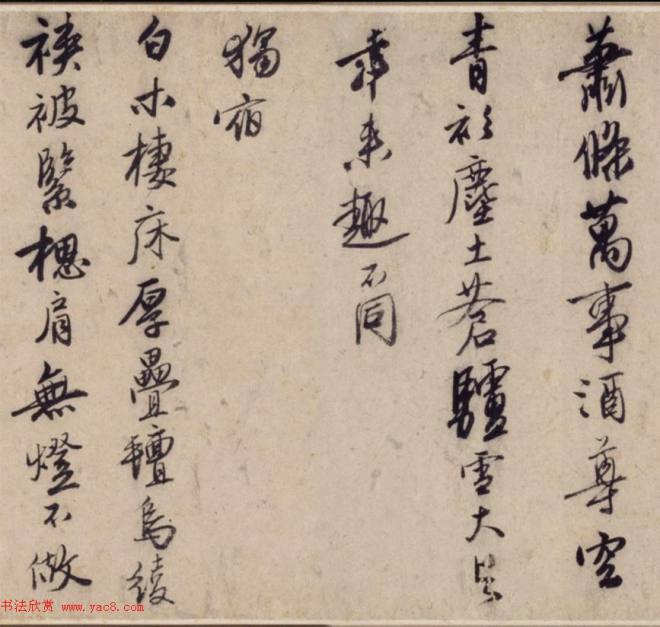 蕭條萬事酒尊空
青衫塵土蒼驢雪大是
年來趣不同
獨宿
白木棲床厚疊氊烏綾
裌被緊肩無燈不做
书法欣赏 www.yac8.com